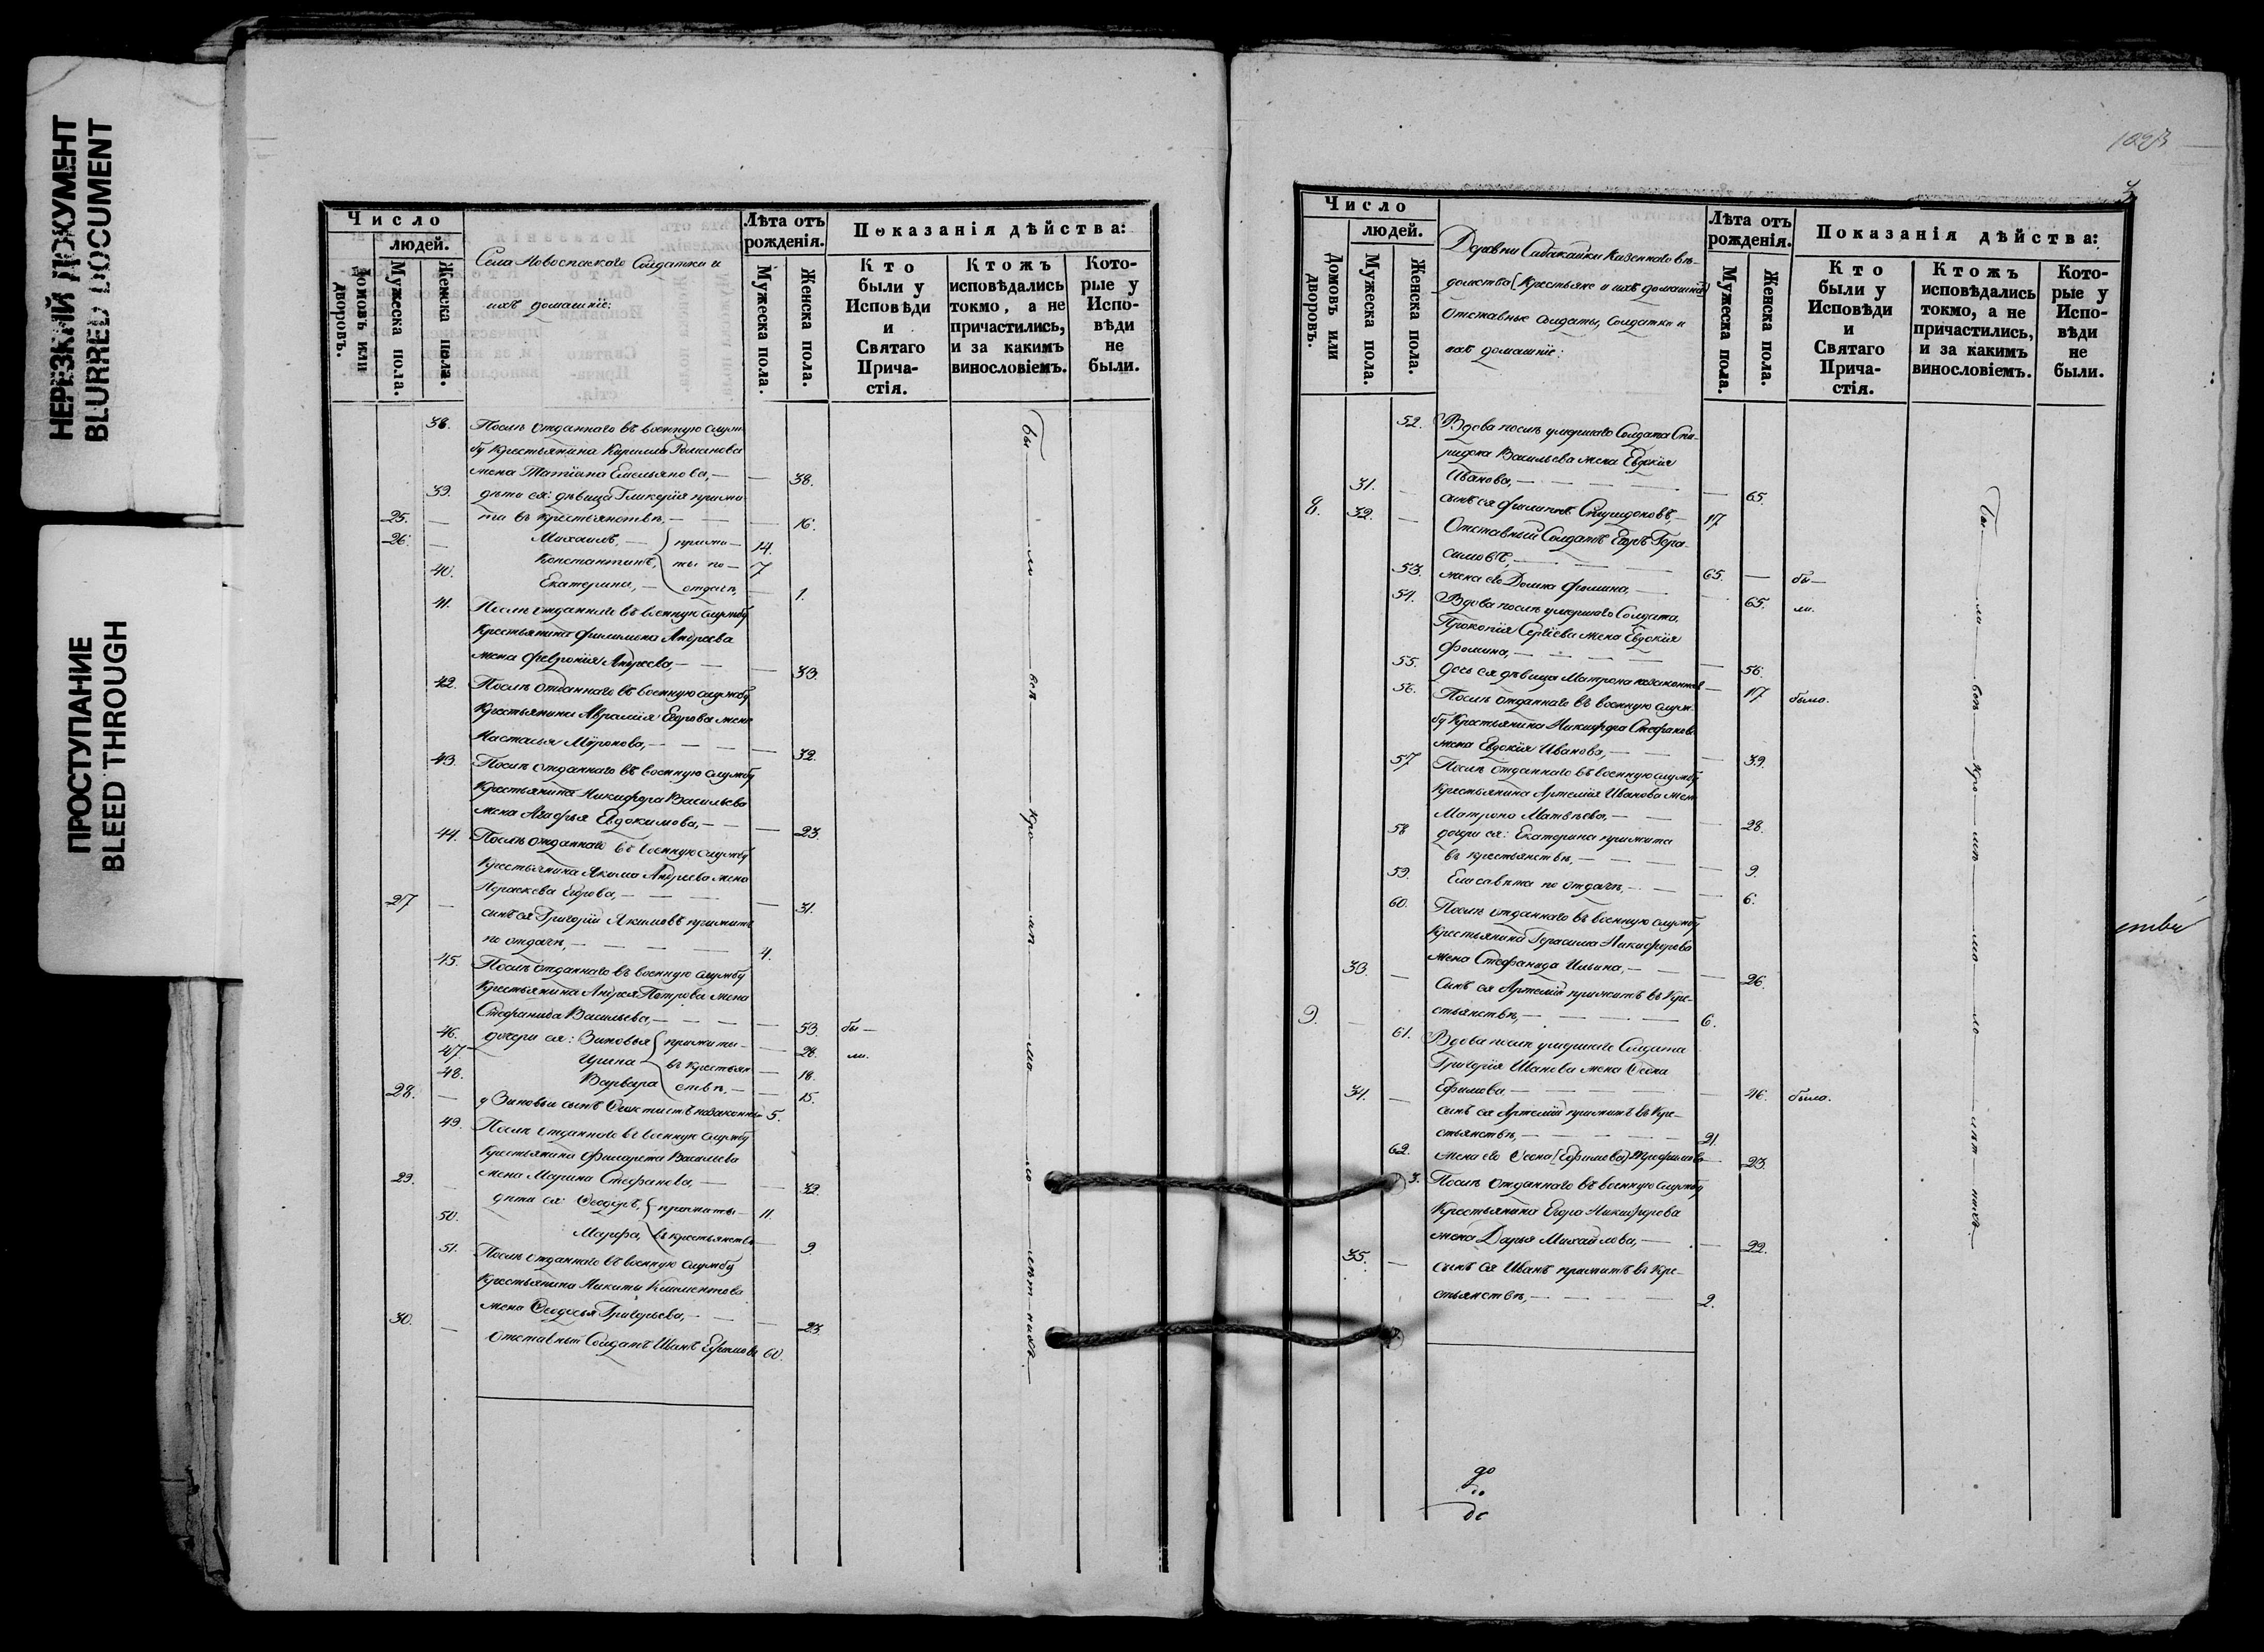 НЕРЕЗКИЙ ДОКУМЕНТ
BLURRED DOCUMENT
ПРОСТУПАНИЕ
BLEED THROUGH
Число
людей.
Домовъ или дворовъ.
Мужеска пола.
Женска пола.
Села Новоспаскаго Солдатки и
ихъ домашніе:
Лѣта отъ
рожденія.
Мужеска пола.
Женска пола.
Показанія дѣйства:
Кто
были у
Исповѣди
и
Святаго
Прича-
стія.
Ктожъ
исповѣдались
токмо, а не
причастились,
и за какимъ
винословіемъ.
Кото-
рые у
Испо-
вѣди
не
были.
38. Послѣ отданнаго въ военную служ-
бу Крестьянина Кирилла Романова
жена Татіана Емельянова, — — 38.
39. дѣти ея: дѣвица Гликерія прижи-
та въ крестьянствѣ, — — — 16.
25. — Михаилъ, — прижи— 14.
26. — Константинъ, ты по— 7
40. Екатерина, — отдачѣ, — 1.
41. Послѣ отданнаго въ военную службу
Крестьянина Филимона Андреева
жена Февронія Андреева, — — — 33.
42. Послѣ отданнаго въ военную службу
Крестьянина Аврамія Егорова жена
Настасья Миронова, — — — — 32.
43. Послѣ отданнаго въ военную службу
Крестьянина Никифора Васильева
жена Агафья Евдокимова, — — 23.
44. Послѣ отданнаго въ военную службу
Крестьянина Якима Андреева жена
Параскева Егорова, — — — — 31.
27 — сынъ ея Григорій Якимовъ прижитъ
по отдачѣ, — — — — 4.
45. Послѣ отданнаго въ военную службу
Крестьянина Андрея Петрова жена
Стефанида Васильева, — — — — 53. бы —
46. дочери ея: Зиновья прижиты — — 28. ли.
47 Ирина въ крестьян — 18.
48. Варвара ствѣ, — — 15.
28. — у Зиновьи сынъ Феоктистъ незаконный 5.
49. Послѣ отданнаго въ военную службу
Крестьянина Филарета Васильева
жена Марина Стефанова, — — 32.
29. — дѣти ея: Феодоръ, прижиты — 11.
50. Марфа, въ крестьянствѣ — 9
51. Послѣ отданнаго въ военную службу
Крестьянина Никиты Климентова
жена Феодосья Григорьева, — — 23
30. — Отставный Солдатъ Иванъ Ефимовъ 60.
Бы — ли — воп — кро — мѣ — ма — ло — лѣт — нихъ. —
Число
людей.
Домовъ или дворовъ.
Мужеска пола.
Женска пола.
Деревни Сабакайки Казеннаго вѣ-
домства [Крестьяне и ихъ домашніе]
Отставные Солдаты, Солдатки и
ихъ домашніе:
Лѣта отъ
рожденія.
Мужеска пола.
Женска пола.
Показанія дѣйства:
Кто
были у
Исповѣди
и
Святаго
Прича-
стія.
Ктожъ
исповѣдались
токмо, а не
причастились,
и за какимъ
винословіемъ.
Кото-
рые у
Испо-
вѣди
не
были.
52. Вдова послѣ умершаго Солдата Спи-
ридона Васильева жена Евдокія
Иванова, — — — — — 65.
31. — сынъ ея Филиппъ Спиридоновъ, — 17
8. 32. — Отставный Солдатъ Егоръ Гера-
симовъ, — — — — 65. — бы—
53. жена его Домна Фомина, — — 65. ли.
54. Вдова послѣ умершаго Солдата,
Прокопія Сергіева жена Евдокія
Фомина, — — — — — 56.
55. дочь ея дѣвица Матрона незаконная — 17 была.
56. Послѣ отданнаго въ военную служ-
бу Крестьянина Никифора Стефанова
жена Евдокія Иванова, — — — 39.
57 Послѣ отданнаго въ военную службу
Крестьянина Артемія Иванова жена
Матрона Матвѣева, — — — 28.
58 дочери ея: Екатерина прижита
въ крестьянствѣ, — — — — 9.
59. Елисавета по отдачѣ, — — — 6.
60. Послѣ отданнаго въ военную службу
Крестьянина Герасима Никифорова
жена Стефанида Ильина, — — — 26.
33. — Сынъ ея Артемій прижитъ въ Кре-
стьянствѣ, — — — — 6.
9. — 61. Вдова послѣ умершаго Солдата
Григорія Иванова жена Фекла
Ефимова — — — — — 46. была.
34. — сынъ ея Артемій прижитъ въ Кре-
стьянствѣ, — — — — 21.
62. жена его Фекла [Ефимова] Трофимова — 23
3. Послѣ отданнаго въ военную службу
Крестьянина Егора Никифорова
жена Дарья Михайлова, — — 22.
35. — сынъ ея Иванъ прижитъ въ Кре-
стьянствѣ, — — — — 2.
Бы — ли — воп — кро — мѣ — ма — ло — лѣт — нихъ. —